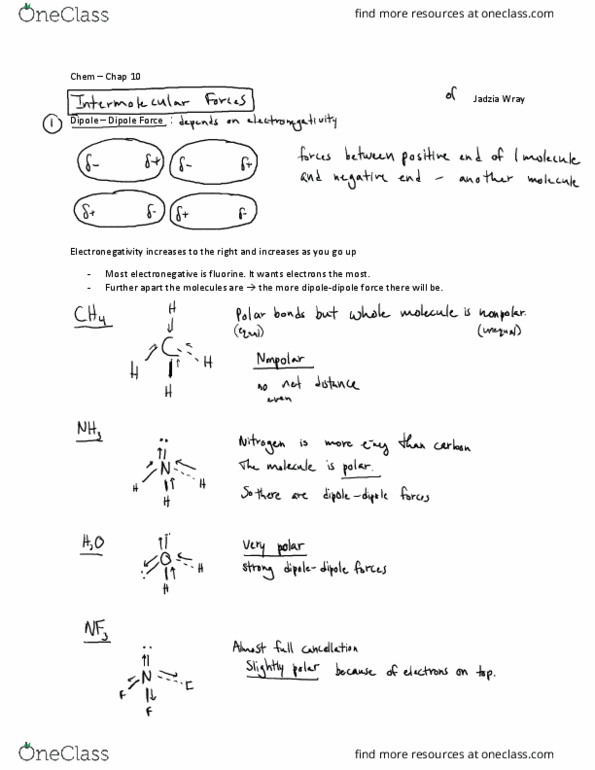 OneClass
find more resources at oneclass.com
Chem – Chap 10
Intermolecular Forces
of Jadzia Wray
1 Dipole – Dipole Force : depends on electronegativity
δ- δ+ δ- δ+
forces between positive end of 1 molecule
and negative end - another molecule
δ+ δ- δ+ δ-
Electronegativity increases to the right and increases as you go up
- Most electronegative is fluorine. It wants electrons the most.
- Further apart the molecules are → the more dipole-dipole force there will be.
CH4
H
C
H
H
H
Polar bonds but whole molecule is nonpolar.
(equal) (unequal)
Nonpolar
no net distance
even
NH3
N
H
H
H
Nitrogen is more e-neg than carbon
The molecule is polar.
So there are dipole-dipole forces
H2O
O
H
H
Very polar
strong dipole-dipole forces
NF3
N
F
F
F
Almost full cancellation
Slightly polar because of electrons on top.
OneClass
find more resources at oneclass.com